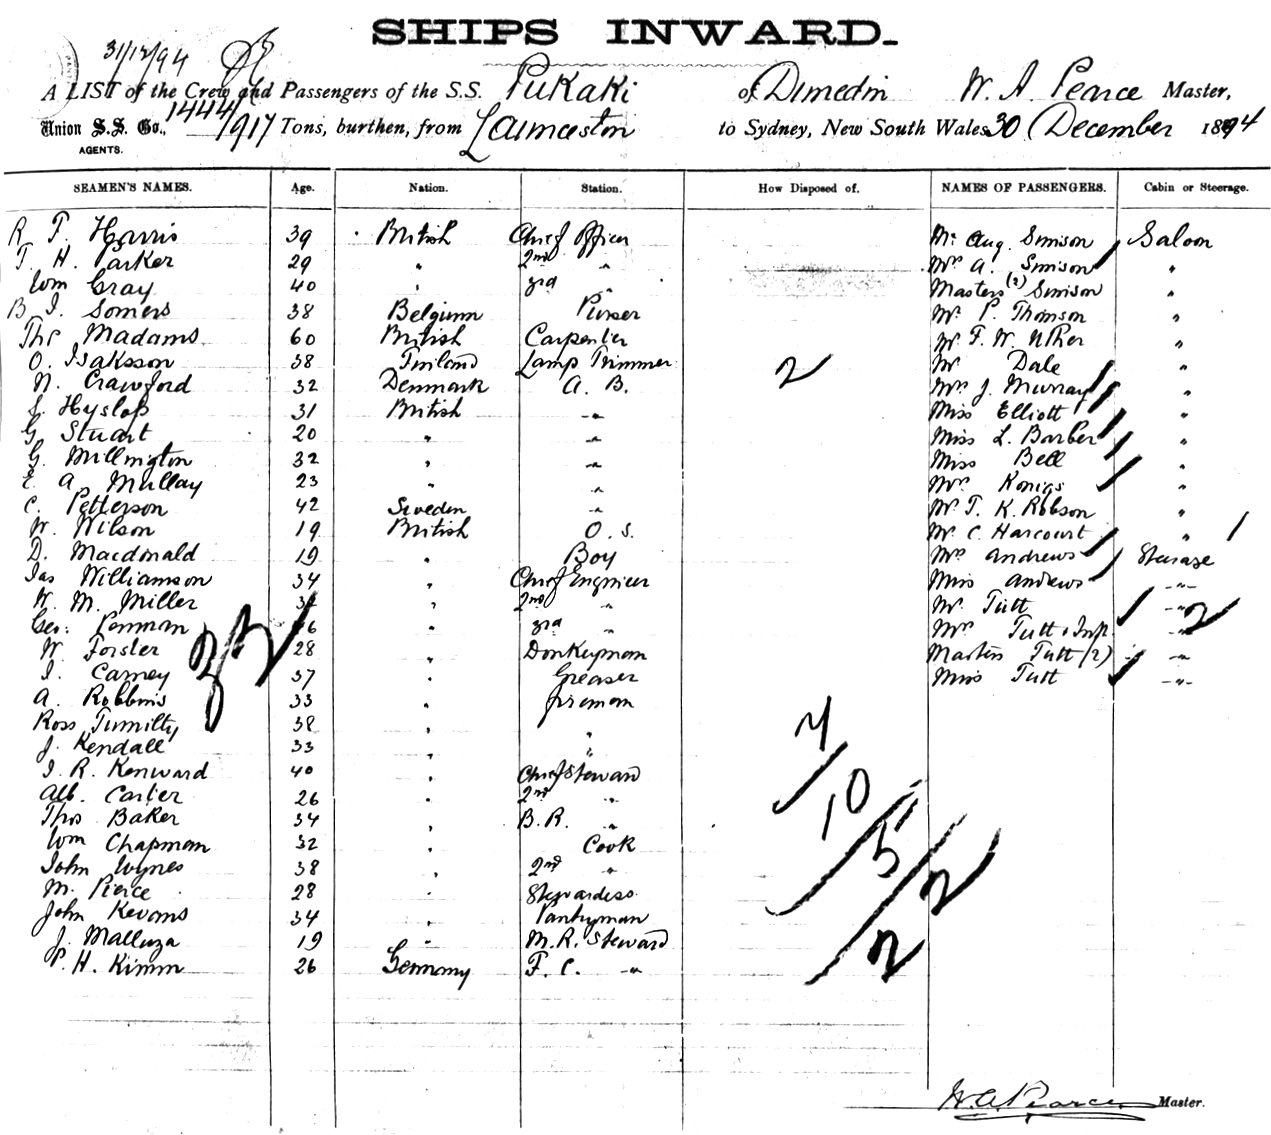 SHIPS INWARD.
31/12/94
A LIST of the Crew and Passengers of the S.S. Pukaki of Dunedin W. A. Pearce Master,
Union S.S. Co., 1444/1917 Tons, burthen, from Launceston to Sydney, New South Wales 30 December 1894
AGENTS.
SEAMEN'S NAMES. Age. Nation. Station. How Disposed of. NAMES OF PASSENGERS. Cabin or Steerage.
R T. Harris 39 British Chief Officer Mr Aug. Simison Saloon
T. H. Parker 29 " 2nd " Mrs A. Simison "
Wm Gray 40 " 3rd Masters (2) Simison "
B I. Somers 38 Belgium Purser Mr P. Thomson "
Thos Madams 60 British Carpenter Mr F. W. "
O. Isaksson 38 Finland Lamp Trimmer 2 Mr Dale "
N. Crawford 32 Denmark A. B. Mrs J. Murray "
J. Hyslop 31 British " Miss Elliott "
G. Stuart 20 " " Miss L. Barber "
G. Millington 32 " " Miss Bell "
E. A. Mullay 23 " " Mrs Konigs "
C. Petterson 42 Sweden " Mr T. K. Robson "
W. Wilson 19 British O. S. Mr C. Harcourt " 1
D. Macdonald 19 " Boy Mrs Andrews Steerage
Jas Williamson 34 " Chief Engineer Miss Andrews "
W. M. Miller " 2nd " Mr Tutt " 2
Geo. Penman 26 " 3rd " Mrs Tutt & Inf "
W Forster 28 " Donkeyman Masters Tutt (2) "
I. Carney 37 " Greaser Miss Tutt "
A. Robbins 33 " Fireman
Ross Tumilty 38 " "
J. Kendall 33 " "
I. R. Kenward 40 " Chief Steward
Alb. Carter 26 " 2nd "
Thos Baker 34 " B.R. "
Wm Chapman 32 " Cook
John Wynes 38 " 2nd "
M. Pierce 28 " Stewardess
John Kevans 34 " Pantryman
J. Malluza 19 " M.R. Steward
P. H. Kimm 26 Germany F. C. "
7/10/5/2/2
W. A. Pearce Master.